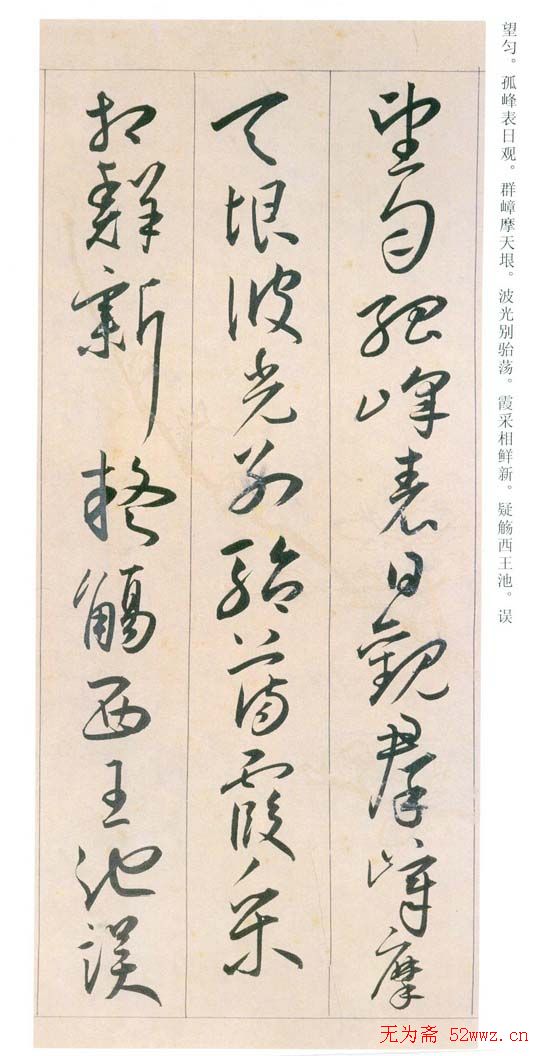 望匀孤峰表日觀群嶂摩
天垠波光别駘蕩霞采
相鮮新疑觴西王池誤
望匀。孤峰表日观。群嶂摩天垠。波光别骀荡。霞采相鲜新。疑觞西王池。误
无为斋 52wwz.cn